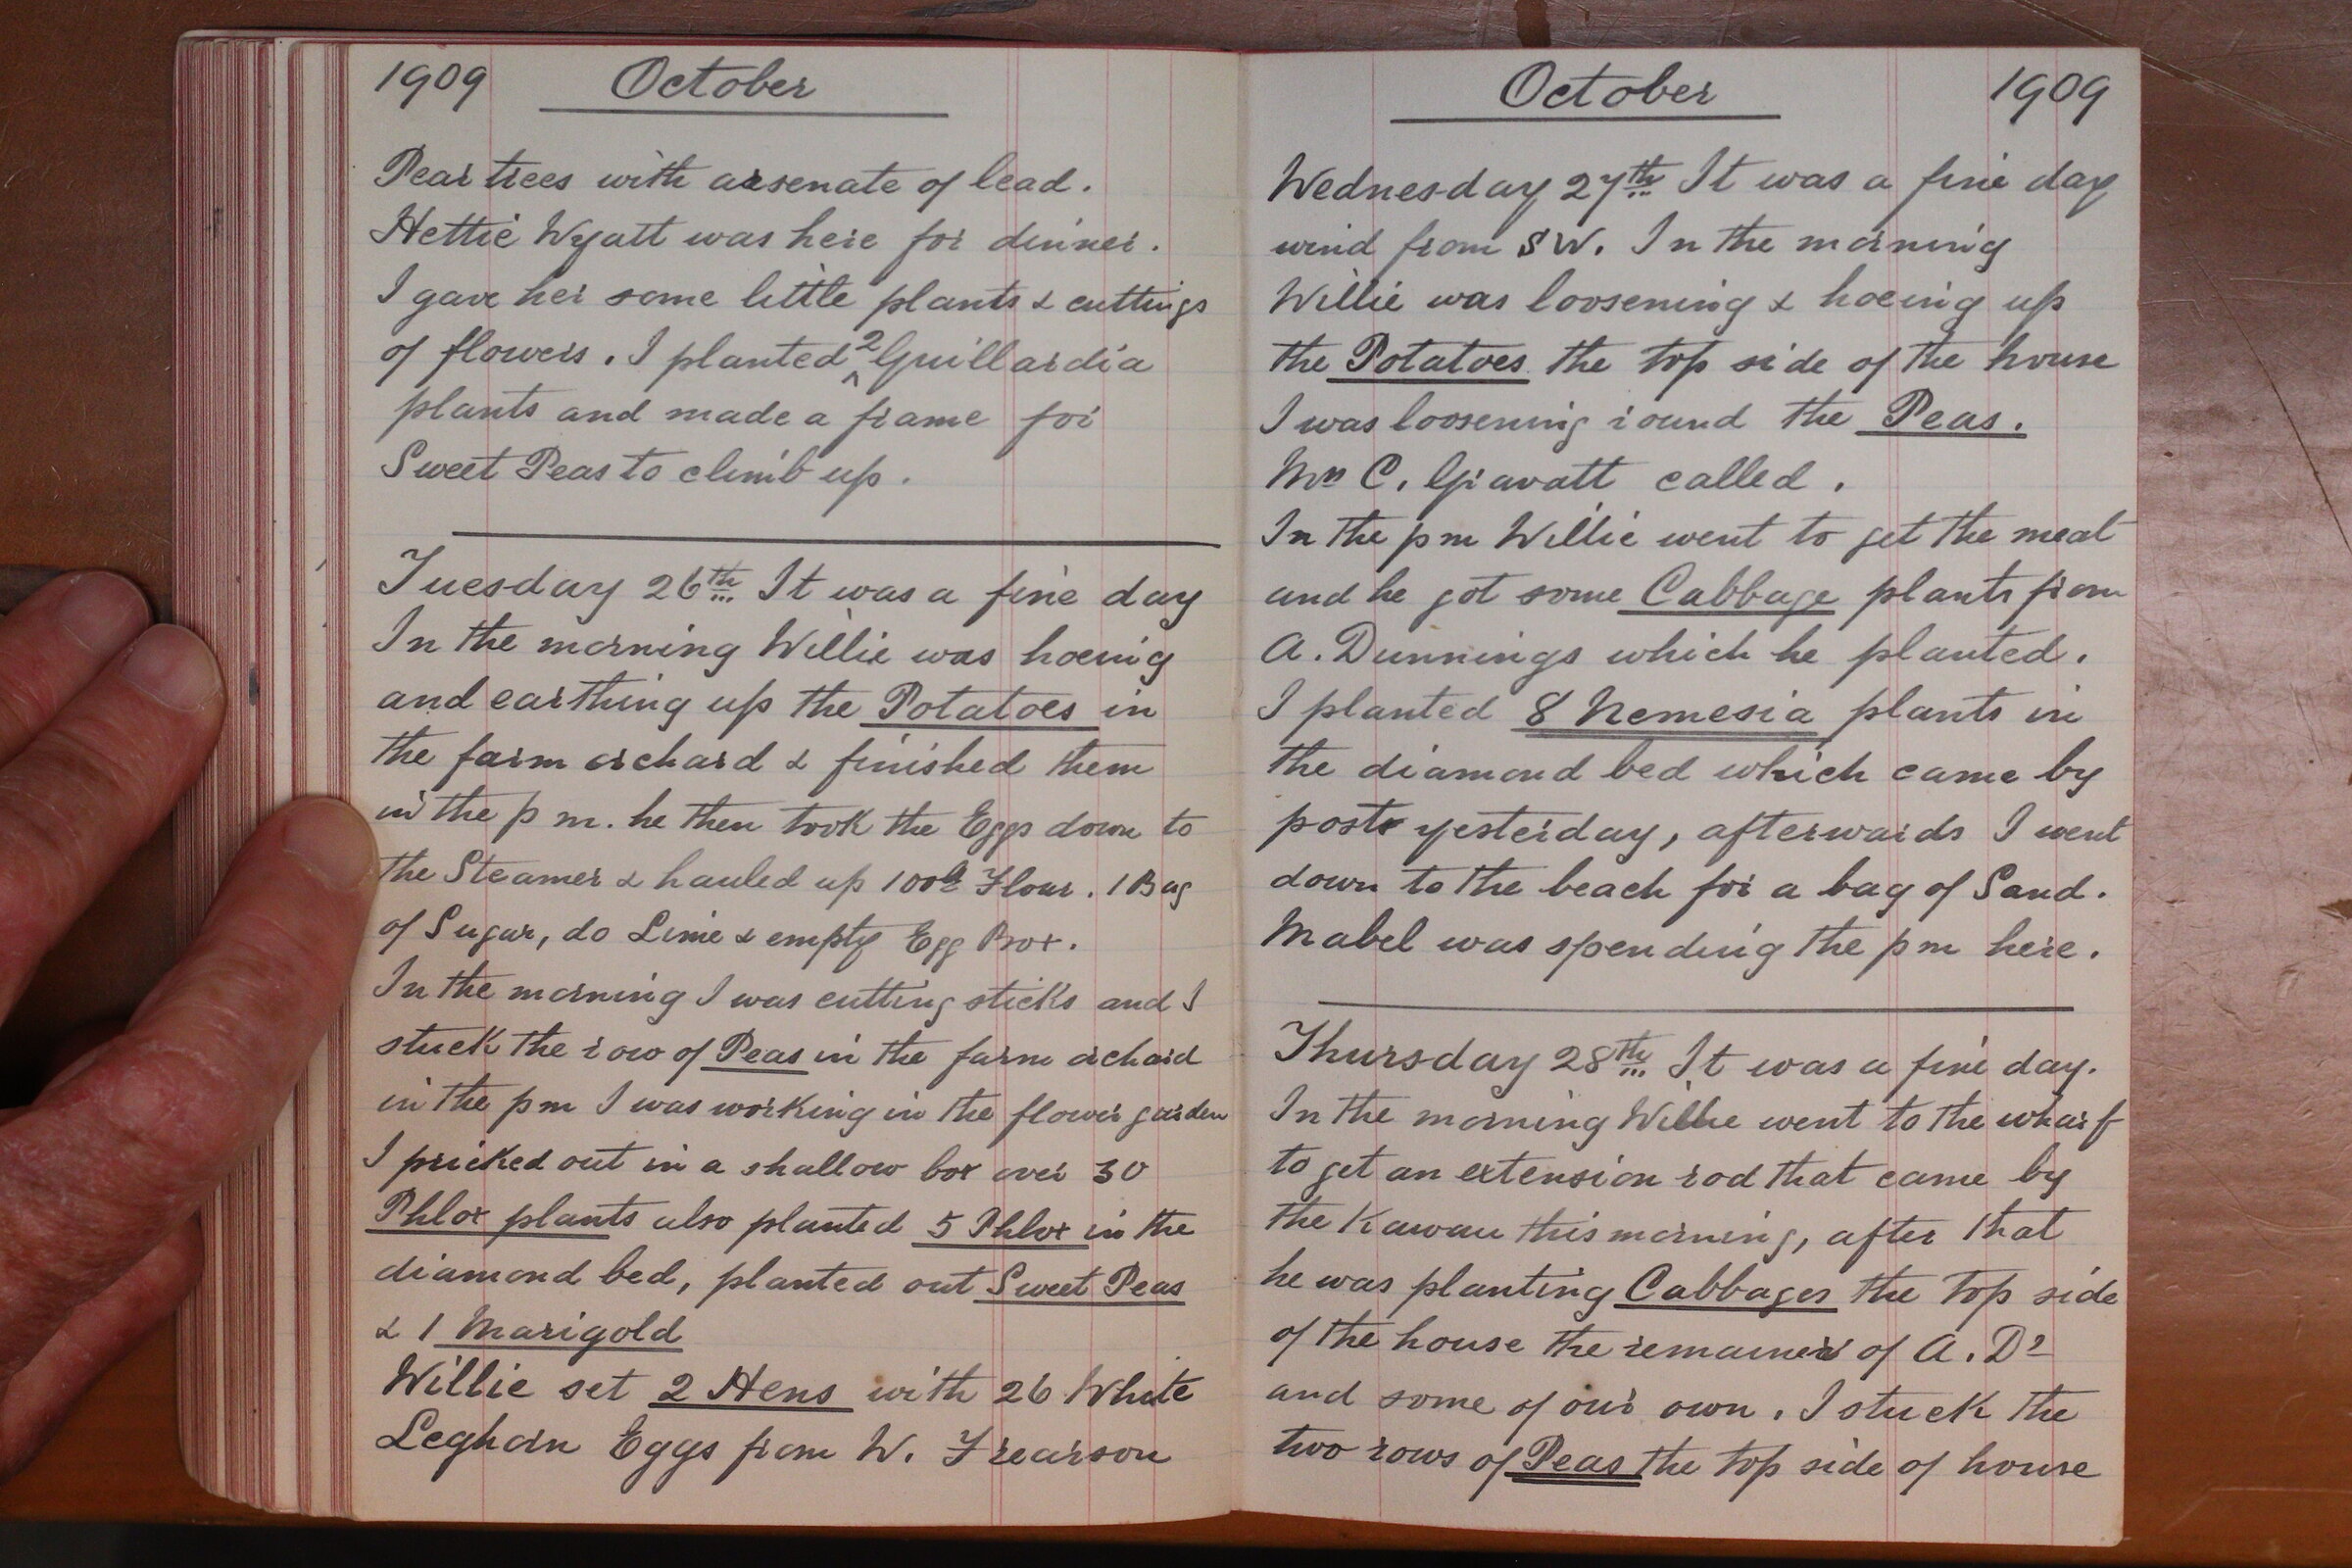 1909 October
Pear trees with arsenate of lead.
Hettie Wyatt was here for dinner.
I gave her some little plants & cuttings
of flowers. I planted 2 Guillardia
plants and made a frame for
Sweet Peas to climb up.
Tuesday 26th It was a fine day
In the morning Willie was hoeing
and earthing up the Potatoes in
the farm orchard & finished them
in the p m. he then took the Eggs down to
the Steamer & hauled up 100lb Flour. 1 Bag
of Sugar, do Lime & empty Egg Box.
In the morning I was cutting sticks and I
stuck the row of Peas in the farm orchard
in the pm I was working in the flower garden
I pricked out in a shallow box over 30
Phlox plants also planted 5 Phlox in the
diamond bed, planted out Sweet Peas
& 1 Marigold
Willie set 2 Hens with 26 White
Leghorn Eggs from W. Frearson
October 1909
Wednesday 27th It was a fine day
wind from SW. In the morning
Willie was loosening & hoeing up
the Potatoes the top side of the house
I was loosening round the Peas.
Mrs C. Gravatt called.
In the pm Willie went to get the meat
and he got some Cabbage plants from
A. Dunnings which he planted.
I planted 8 Nemesia plants in
the diamond bed which came by
post yesterday, afterwards I went
down to the beach for a bag of Sand.
Mabel was spending the pm here.
Thursday 28th It was a fine day.
In the morning Willie went to the wharf
to get an extension rod that came by
the Kawau this morning, after that
he was planting Cabbages the top side
of the house the remainer of A. Ds
and some of our own. I stuck the
two rows of Peas the top side of house